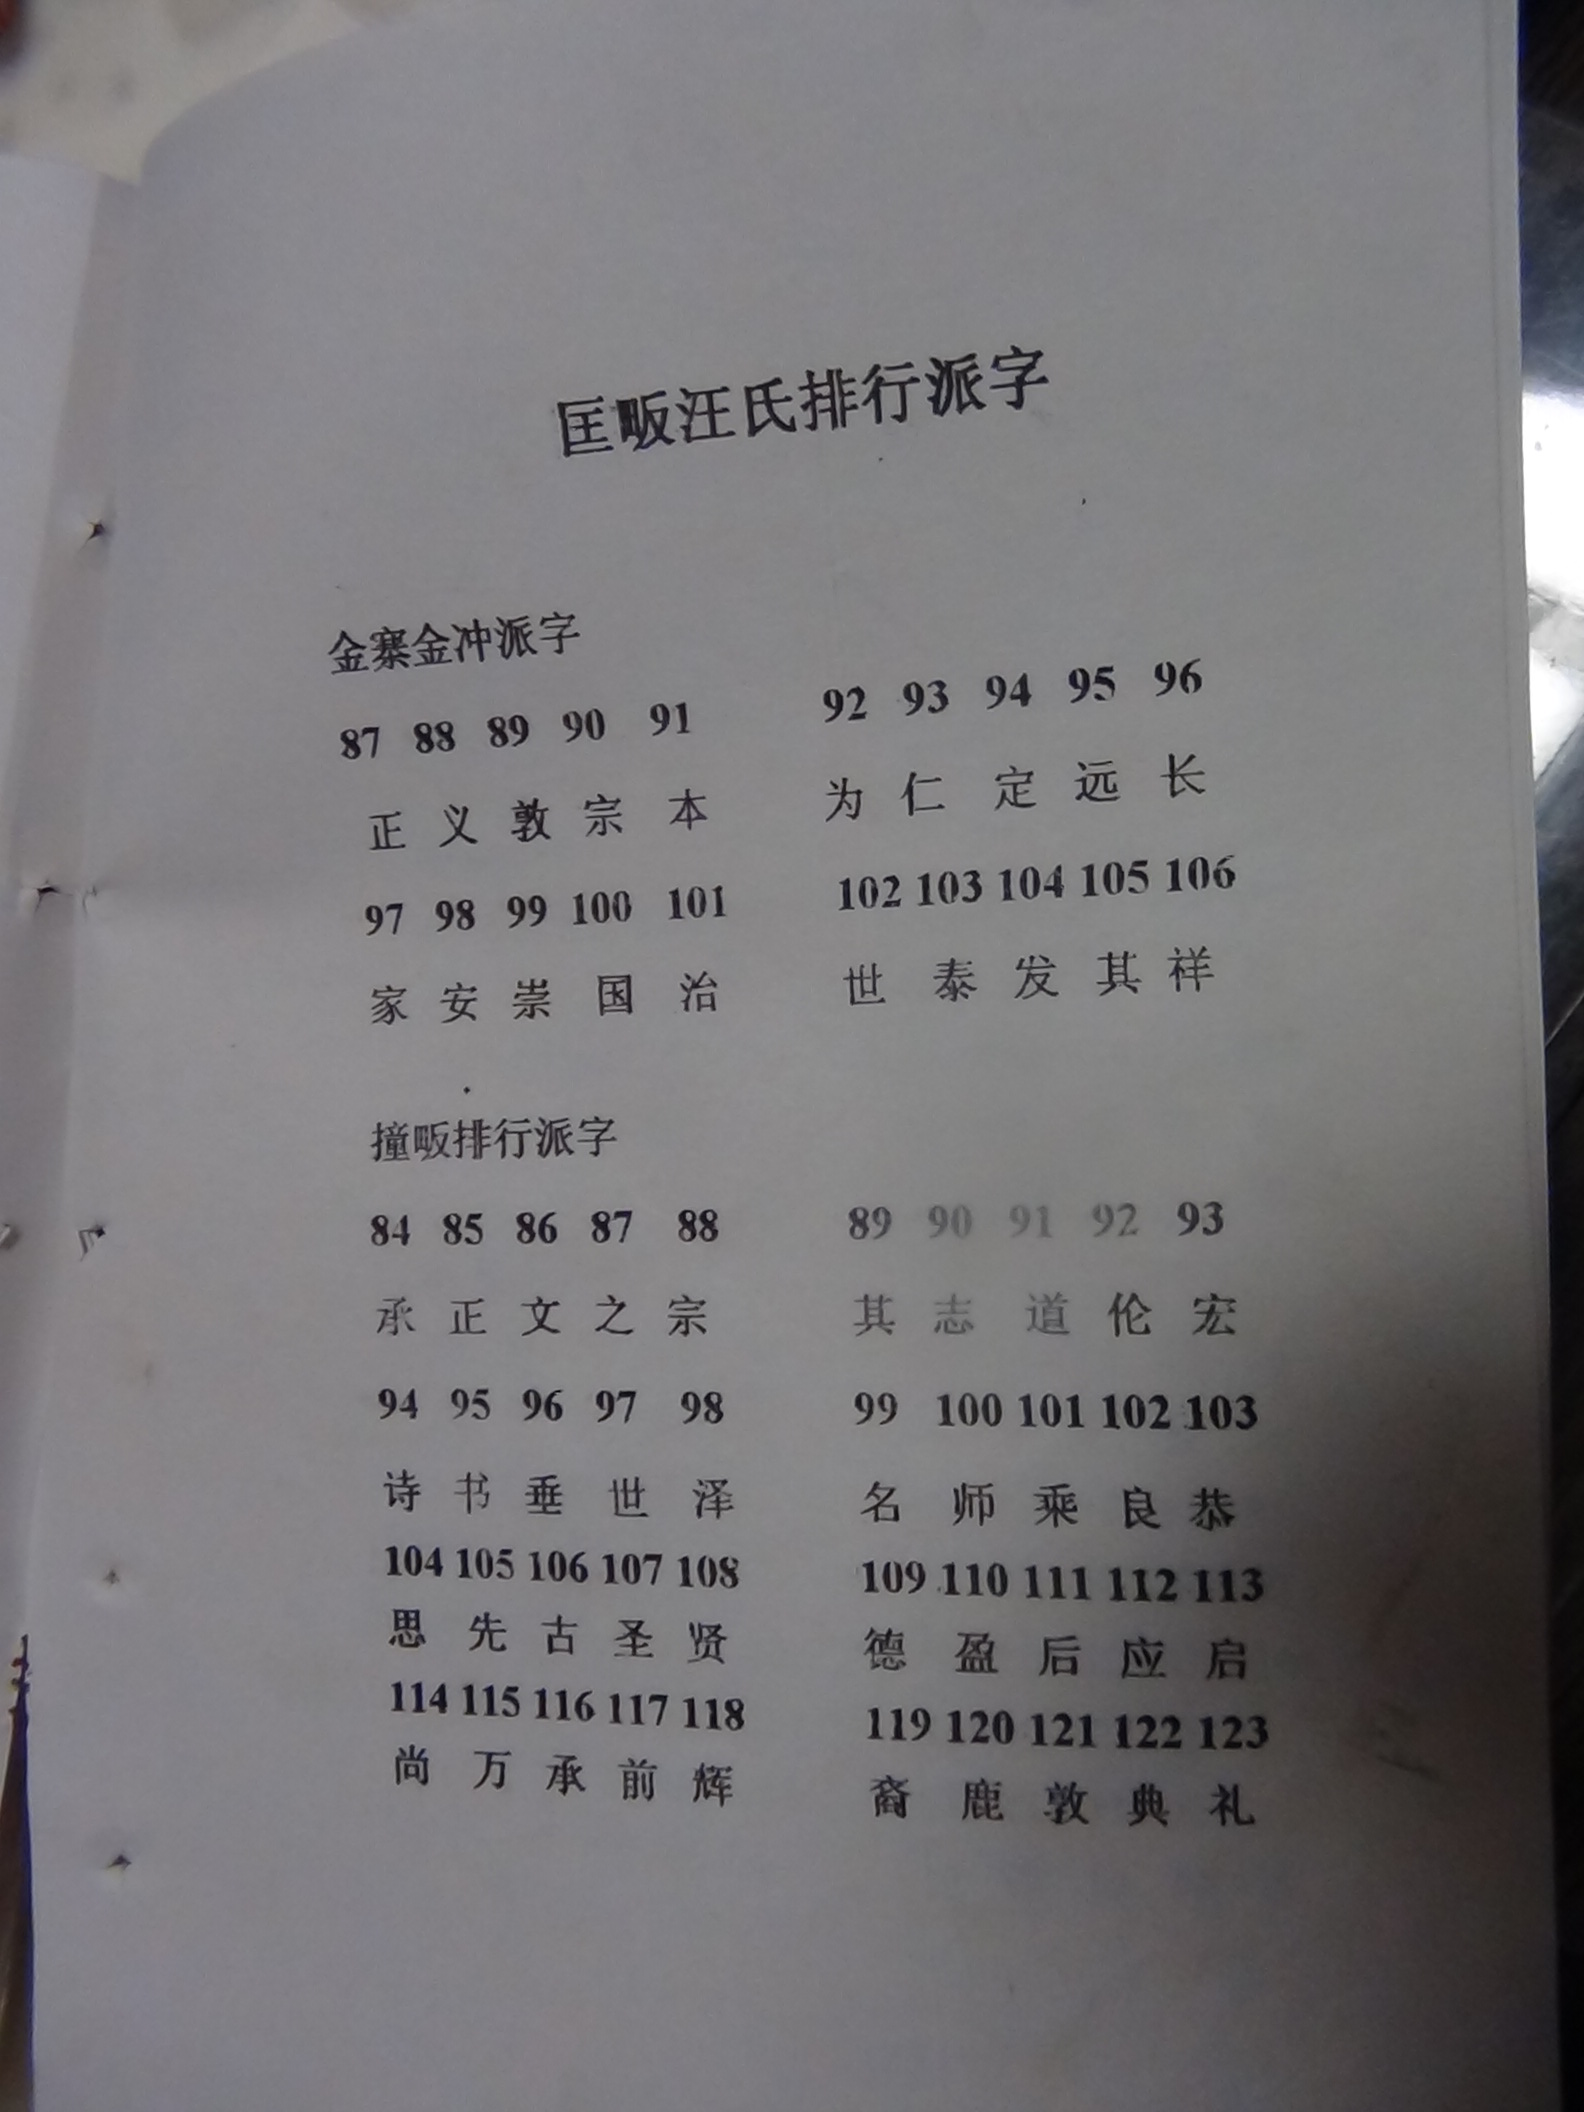 匡畈汪氏排行派字
金寨金冲派字
87 88 89 90 91 92 93 94 95 96
正 义 敦 宗 本 为 仁 定 远 长
97 98 99 100 101 102 103 104 105 106
家 安 崇 国 治 世 泰 发 其 祥
撞畈排行派字
84 85 86 87 88 89 90 91 92 93
承 正 文 之 宗 其 志 道 伦 宏
94 95 96 97 98 99 100 101 102 103
诗 书 垂 世 泽 名 师 乘 良 恭
104 105 106 107 108 109 110 111 112 113
思 先 古 圣 贤 德 盈 后 应 启
114 115 116 117 118 119 120 121 122 123
尚 万 承 前 辉 裔 鹿 敦 典 礼